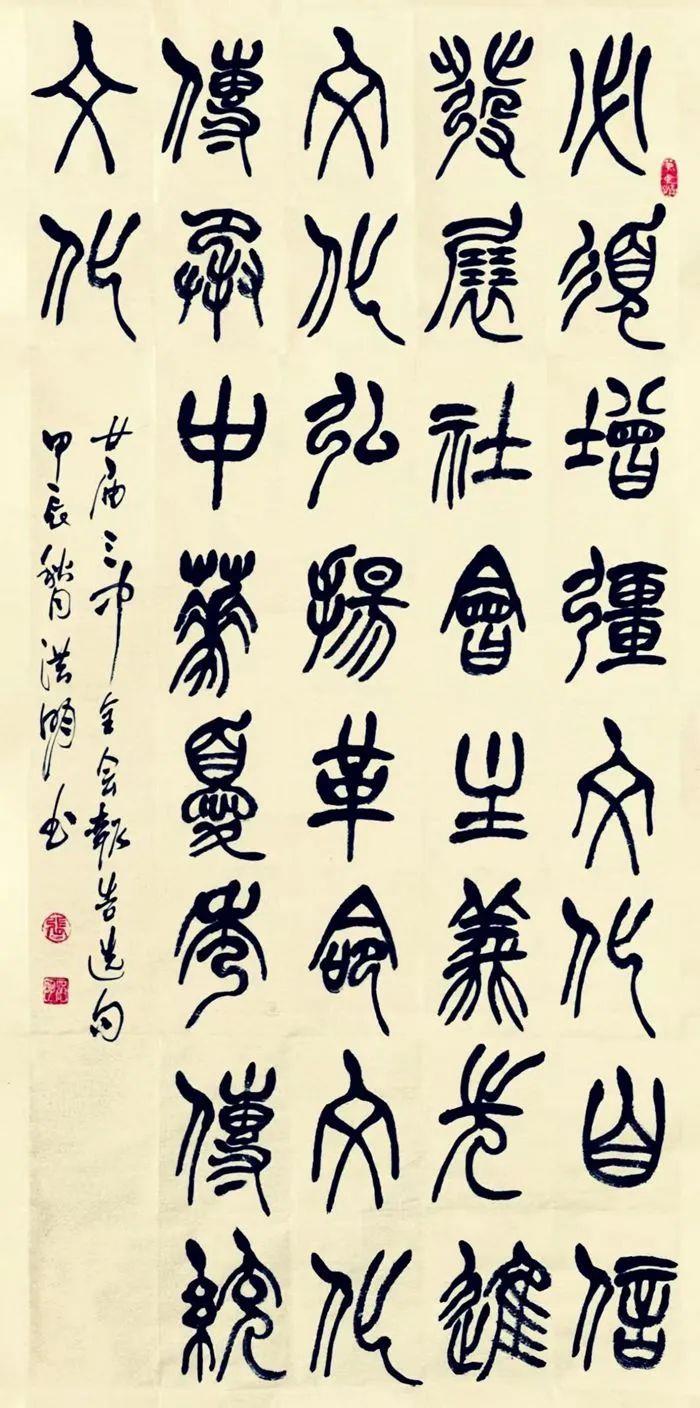 必須增彊文化自信
發展社會主義先進
文化弘揚革命文化
傳承中華優秀傳統
文化
廿届三中全会報告选句
甲辰秋月洪明书
張